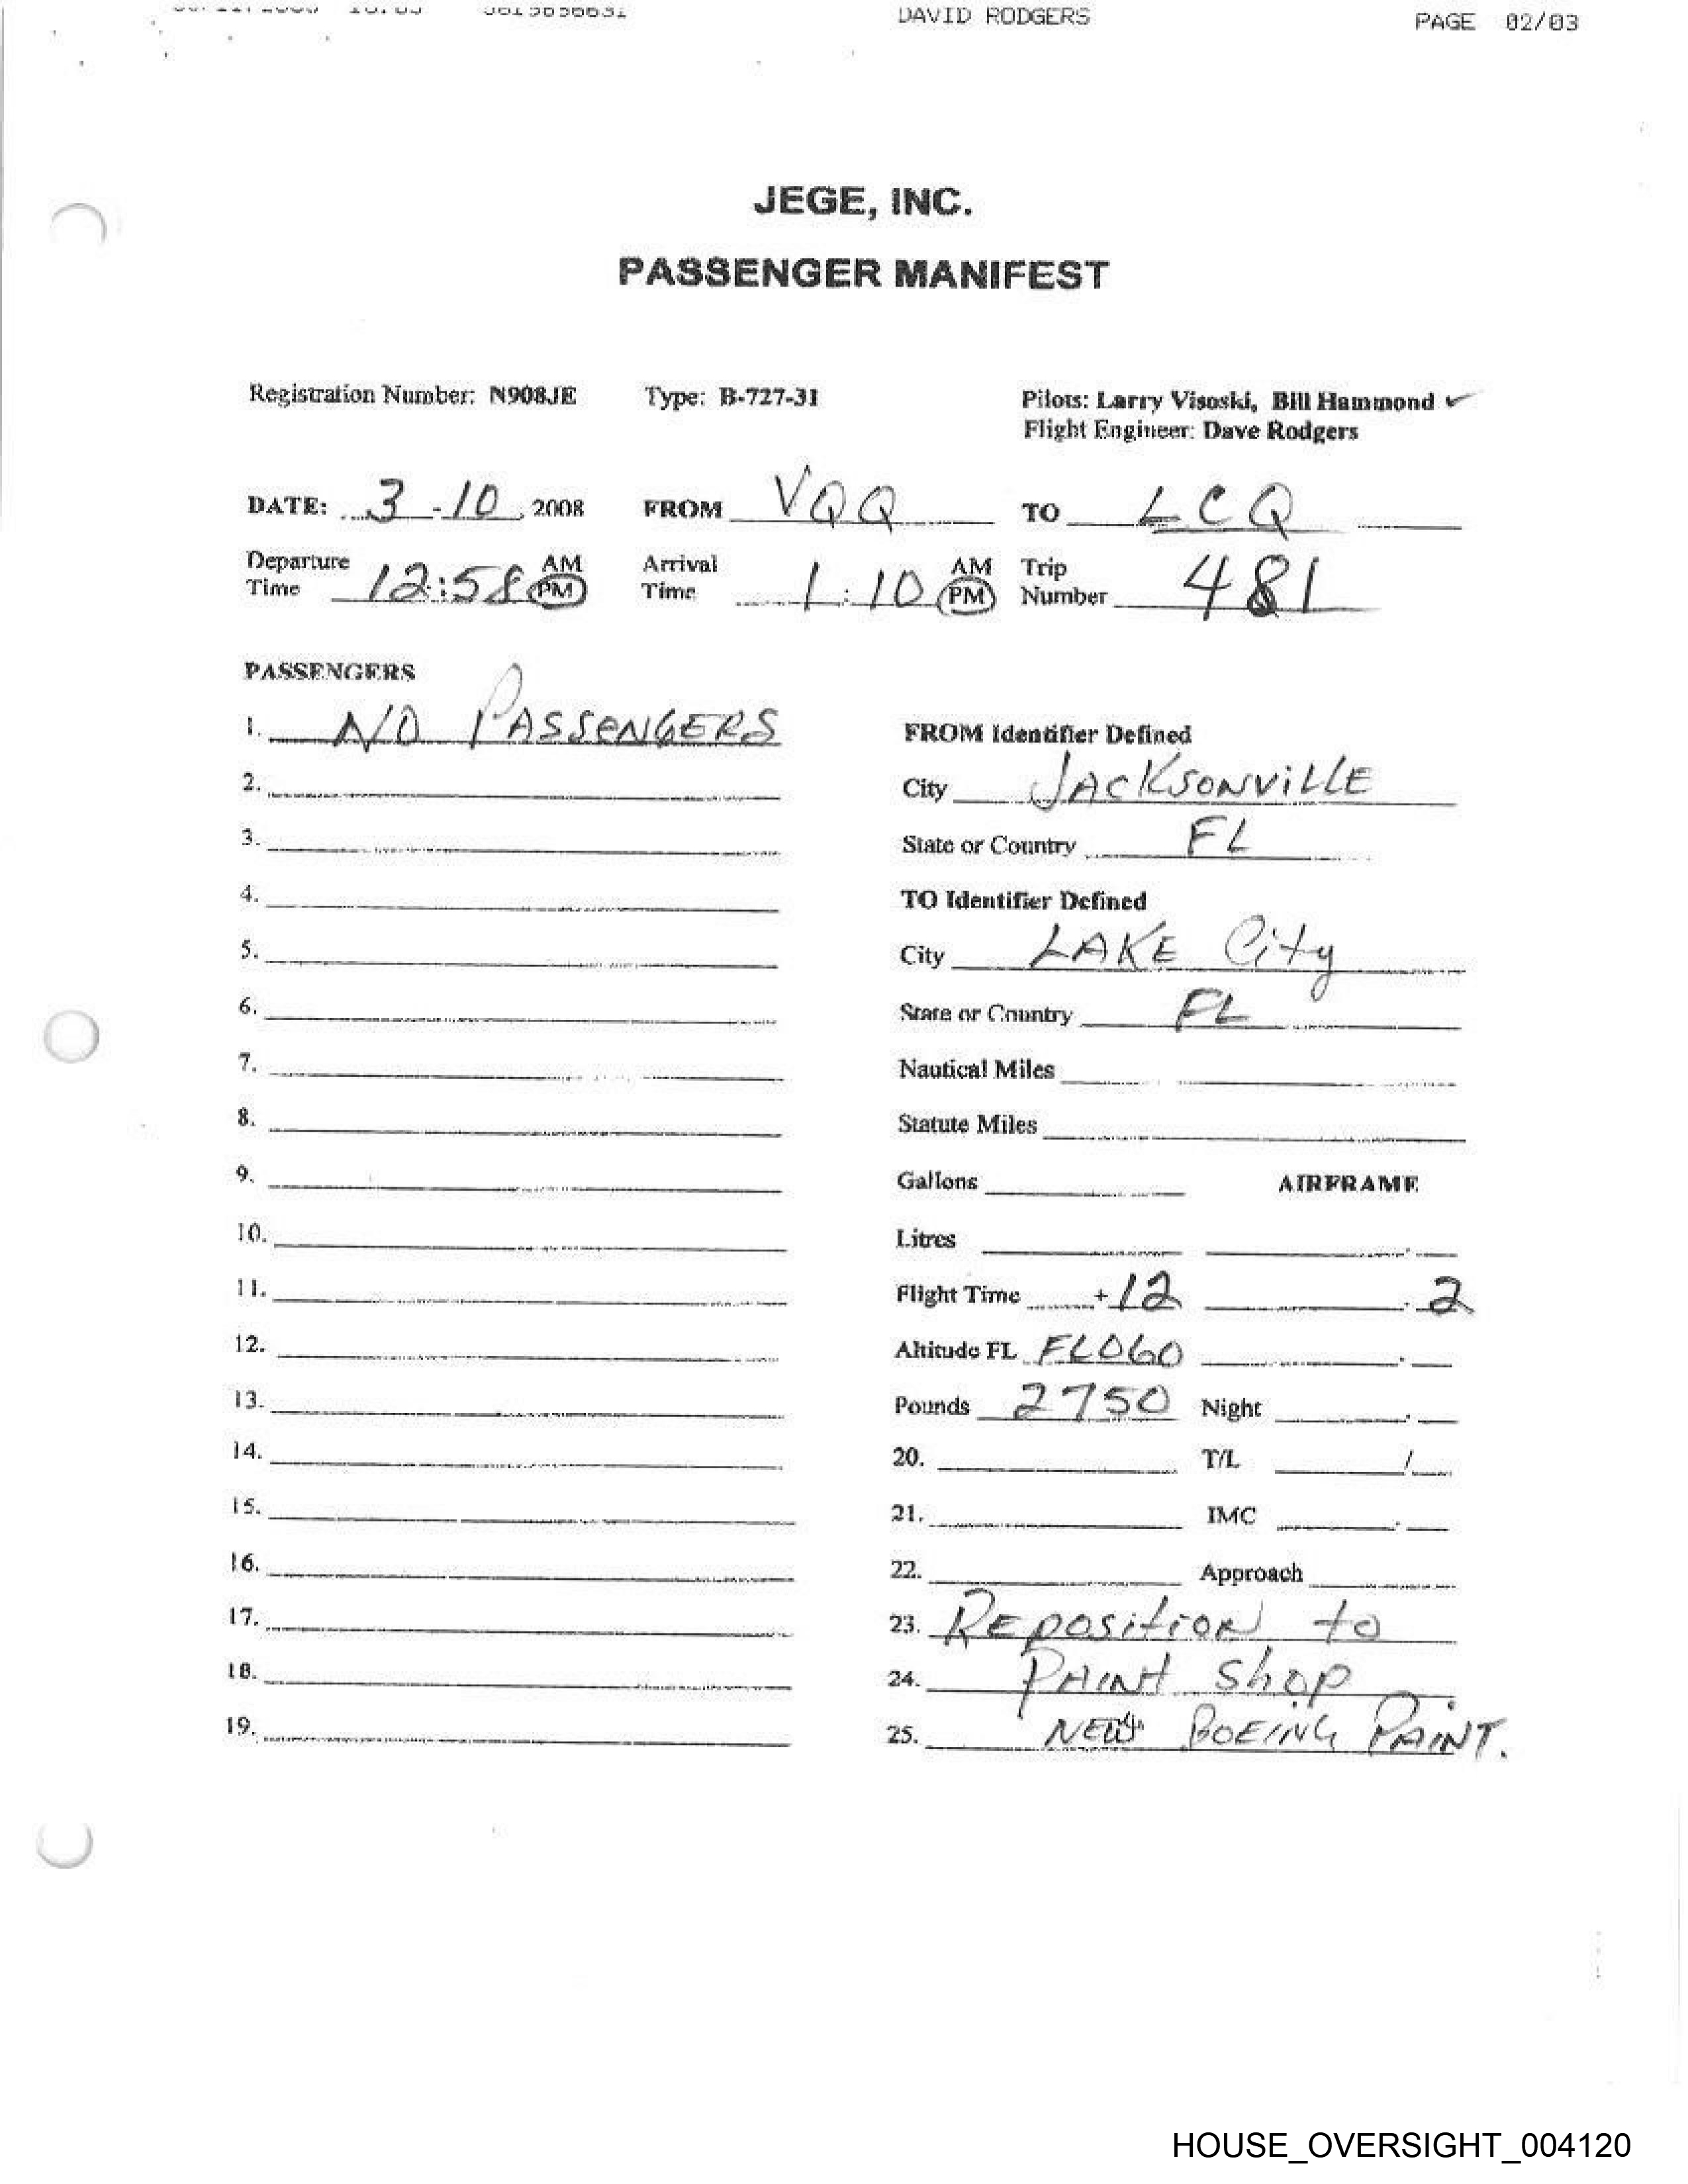 DAVID RODGERS PAGE 02/03
JEGE, INC.
PASSENGER MANIFEST
Registration Number: N908JE Type: B-727-31 Pilots: Larry Visoski, Bill Hammond ✓
Flight Engineer: Dave Rodgers
DATE: 3-10, 2008 FROM VQQ TO LCQ
Departure Time 12:58 AM PM Arrival Time 1:10 AM PM Trip Number 481
PASSENGERS
1. NO PASSENGERS
2.
3.
4.
5.
6.
7.
8.
9.
10.
11.
12.
13.
14.
15.
16.
17.
18.
19.
FROM Identifier Defined
City JACKSONVILLE
State or Country FL
TO Identifier Defined
City LAKE City
State or Country FL
Nautical Miles
Statute Miles
Gallons AIRFRAME
Litres .
Flight Time +12 .2
Altitude FL FL060 .
Pounds 2750 Night .
20. T/L /
21. IMC .
22. Approach
23. REposition to
24. PAINT Shop.
25. NEW BOEING PAINT.
HOUSE_OVERSIGHT_004120